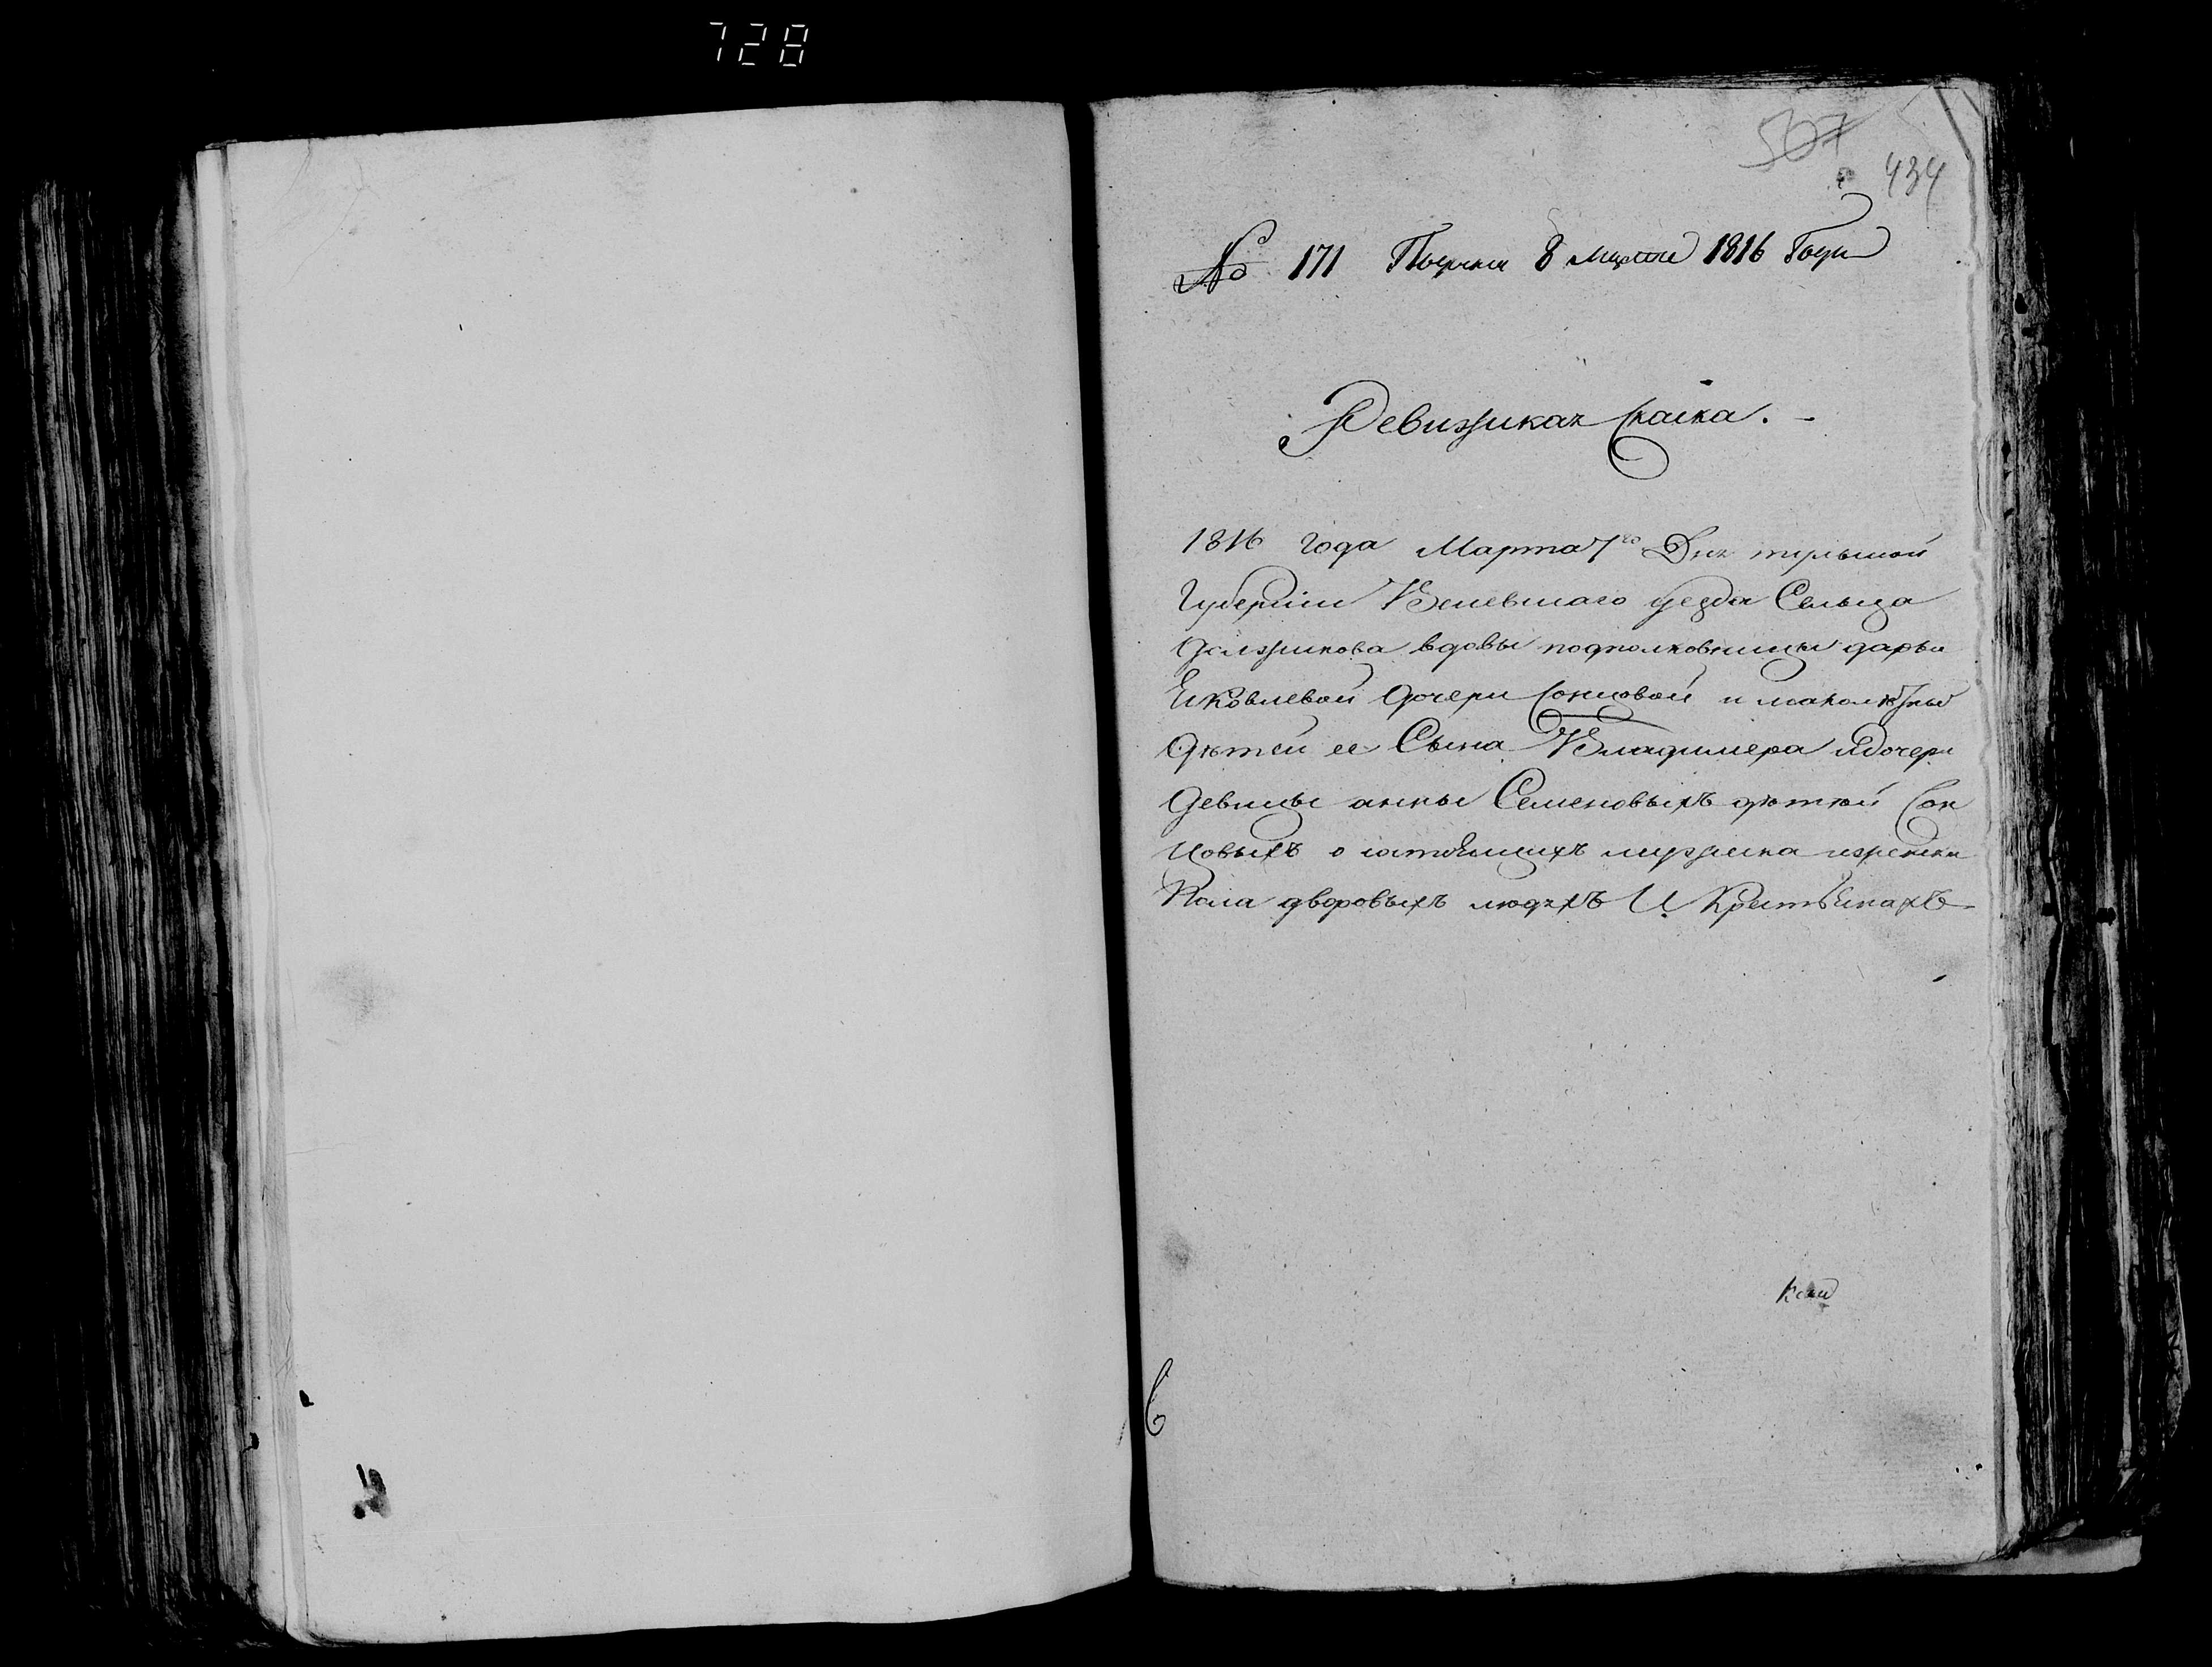 728
507
434
№ 171 Подана 8 марта 1816 Года
Ревизская Скаска. -
1816 года Марта 7го Дня тульской
Губернии Веневскаго уезда Сельца
вдовы подполковницы дарьи
Яковлевой дочери Сонцовой и малолѣтныхъ
дѣтей ее Сына Владимера идочери
девицы анны Семеновыхъ дѣтей Сон
цовыхъ о состоящихъ мужеска иженска
Пола дворовыхъ людяхъ И Крестьянахъ